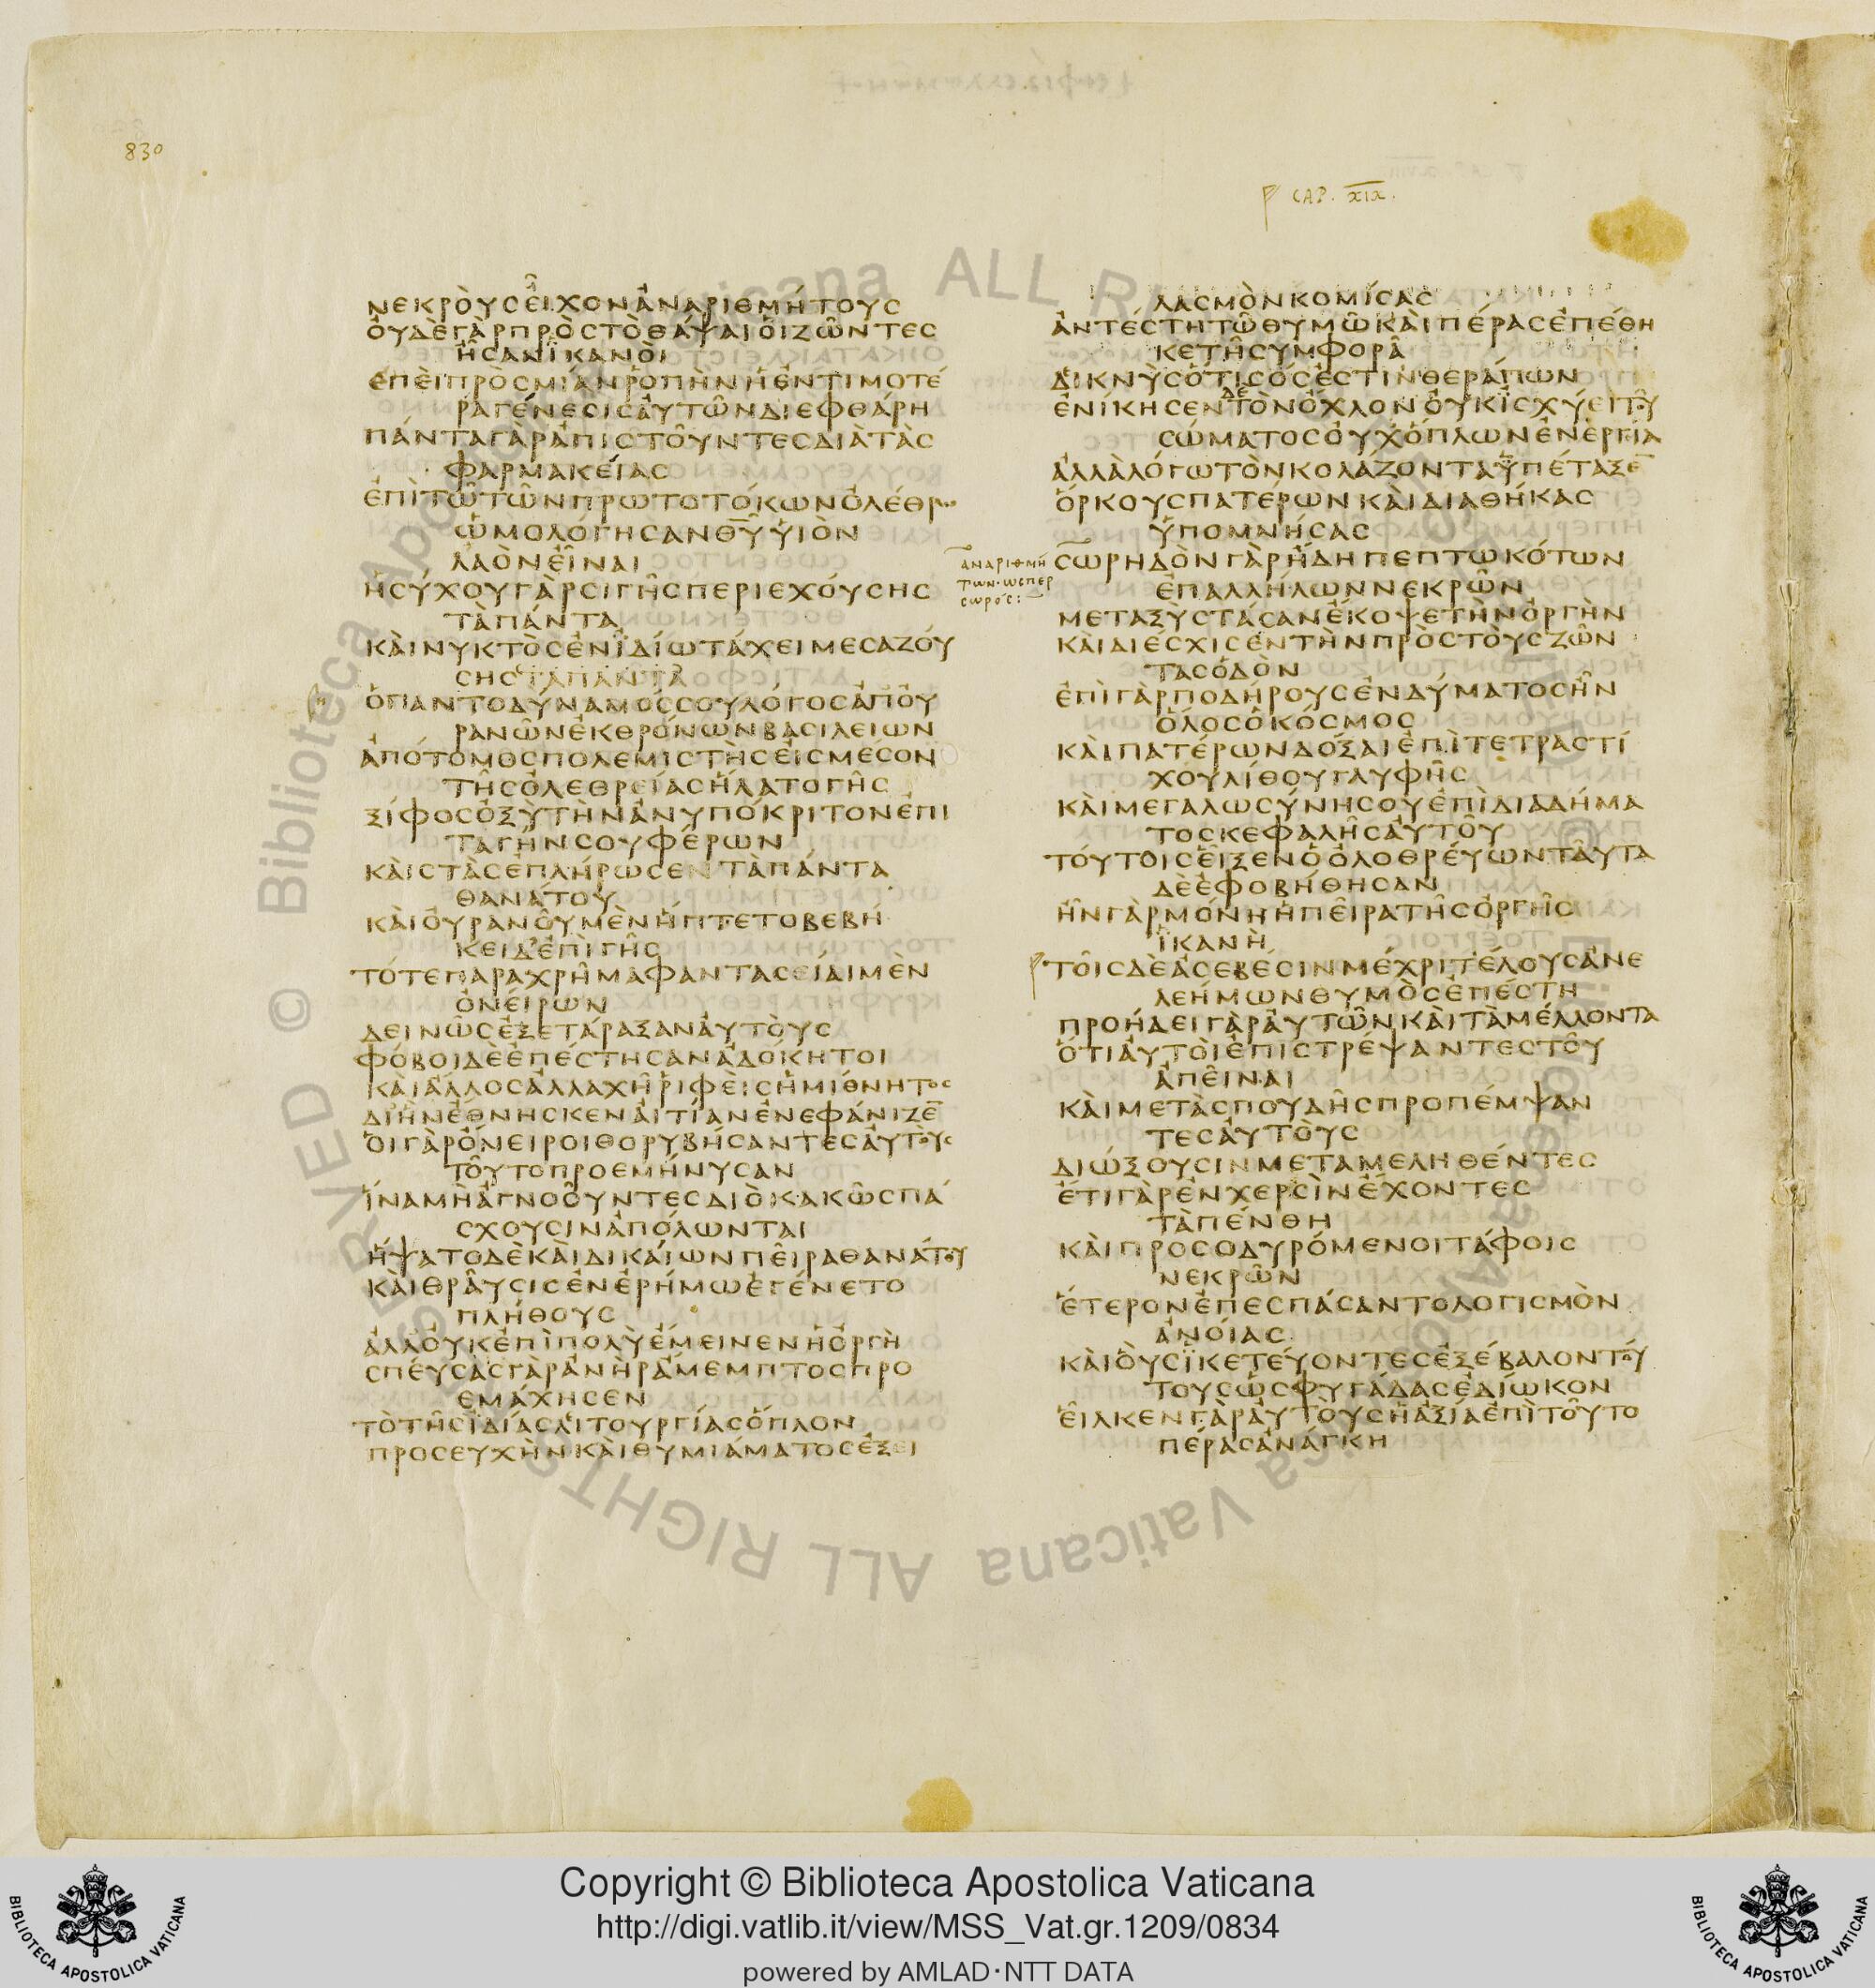 830
CAP. XIX.
ΝΕΚΡΟΥϹΕΙΧΟΝΑΝΑΡΙΘΜΗΤΟΥϹ
ΟΥΔΕΓΑΡΠΡΟϹΤΟΘΑΨΑΙΟΙΖΩΝΤΕϹ
ΗϹΑΝΙΚΑΝΟΙ
ΕΠΕΙΠΡΟϹΜΙΑΝΡΟΠΗΝΗΕΝΤΙΜΟΤΕ
ΡΑΓΕΝΕϹΙϹΑΥΤΩΝΔΙΕΦΘΑΡΗ
ΠΑΝΤΑΓΑΡΑΠΙϹΤΟΥΝΤΕϹΔΙΑΤΑϹ
ΦΑΡΜΑΚΕΙΑϹ
ΕΠΙΤΩΤΩΝΠΡΩΤΟΤΟΚΩΝΟΛΕΘΡΩ
ΩΜΟΛΟΓΗϹΑΝΘΥΥΙΟΝ
ΛΑΟΝΕΙΝΑΙ
ΗϹΥΧΟΥΓΑΡϹΙΓΗϹΠΕΡΙΕΧΟΥϹΗϹ
ΤΑΠΑΝΤΑ
ΚΑΙΝΥΚΤΟϹΕΝΙΔΙΩΤΑΧΕΙΜΕϹΑΖΟΥ
ϹΗϹΤΑΠΑΝΤΑ
ΟΠΑΝΤΟΔΥΝΑΜΟϹϹΟΥΛΟΓΟϹΑΠΟΥ
ΡΑΝΩΝΕΚΘΡΟΝΩΝΒΑϹΙΛΕΙΩΝ
ΑΠΟΤΟΜΟϹΠΟΛΕΜΙϹΤΗϹΕΙϹΜΕϹΟΝ
ΤΗϹΟΛΕΘΡΕΙΑϹΗΛΑΤΟΓΗϹ
ΞΙΦΟϹΟΞΥΤΗΝΑΝΥΠΟΚΡΙΤΟΝΕΠΙ
ΤΑΓΗΝϹΟΥΦΕΡΩΝ
ΚΑΙϹΤΑϹΕΠΛΗΡΩϹΕΝΤΑΠΑΝΤΑ
ΘΑΝΑΤΟΥ
ΚΑΙΟΥΡΑΝΟΥΜΕΝΗΠΤΕΤΟΒΕΒΗ
ΚΕΙΔΕΠΙΓΗϹ
ΤΟΤΕΠΑΡΑΧΡΗΜΑΦΑΝΤΑϹΕΙΑΙΜΕΝ
ΟΝΕΙΡΩΝ
ΔΕΙΝΩϹΕΞΕΤΑΡΑΞΑΝΑΥΤΟΥϹ
ΦΟΒΟΙΔΕΕΠΕϹΤΗϹΑΝΑΔΟΚΗΤΟΙ
ΚΑΙΑΛΛΟϹΑΛΛΑΧΗΡΙΦΕΙϹΗΜΙΘΝΗΤΟϹ
ΔΙΗΝΕΘΝΗϹΚΕΝΑΙΤΙΑΝΕΝΕΦΑΝΙΖΕ̅
ΟΙΓΑΡΟΝΕΙΡΟΙΘΟΡΥΒΗϹΑΝΤΕϹΑΥΤΟΥϹ
ΤΟΥΤΟΠΡΟΕΜΗΝΥϹΑΝ
ΙΝΑΜΗΑΓΝΟΟΥΝΤΕϹΔΙΟΚΑΚΩϹΠΑ
ϹΧΟΥϹΙΝΑΠΟΛΩΝΤΑΙ
ΗΨΑΤΟΔΕΚΑΙΔΙΚΑΙΩΝΠΕΙΡΑΘΑΝΑΤΟΥ
ΚΑΙΘΡΑΥϹΙϹΕΝΕΡΗΜΩΕΓΕΝΕΤΟ
ΠΛΗΘΟΥϹ
ΑΛΛΟΥΚΕΠΙΠΟΛΥΕΜΕΙΝΕΝΗΟΡΓΗ
ϹΠΕΥϹΑϹΓΑΡΑΝΗΡΑΜΕΜΠΤΟϹΠΡΟ
ΕΜΑΧΗϹΕΝ
ΤΟΤΗϹΙΔΙΑϹΛΙΤΟΥΡΓΙΑϹΟΠΛΟΝ
ΠΡΟϹΕΥΧΗΝΚΑΙΘΥΜΙΑΜΑΤΟϹΕΞΕΙ
ΛΑϹΜΟΝΚΟΜΙϹΑϹ
ΑΝΤΕϹΤΗΤΩΘΥΜΩΚΑΙΠΕΡΑϹΕΠΕΘΗ
ΚΕΤΗϹΥΜΦΟΡΑ
ΔΙΚΝΥϹΟΤΙϹΟϹΕϹΤΙΝΘΕΡΑΠΩΝ
ΕΝΙΚΗϹΕΝΔΕΤΟΝΟΧΛΟΝΟΥΚΙϹΧΥΕΙΤΟΥ
ϹΩΜΑΤΟϹΟΥΧΟΠΛΩΝΕΝΕΡΓΙΑ
ΑΛΛΑΛΟΓΩΤΟΝΚΟΛΑΖΟΝΤΑΥΠΕΤΑΞΕ̅
ΟΡΚΟΥϹΠΑΤΕΡΩΝΚΑΙΔΙΑΘΗΚΑϹ
ΥΠΟΜΝΗϹΑϹ
ἀναριθμή
των· ὡσπερ
σωρός:
ϹΩΡΗΔΟΝΓΑΡΗΔΗΠΕΠΤΩΚΟΤΩΝ
ΕΠΑΛΛΗΛΩΝΝΕΚΡΩΝ
ΜΕΤΑΞΥϹΤΑϹΑΝΕΚΟΨΕΤΗΝΟΡΓΗΝ
ΚΑΙΔΙΕϹΧΙϹΕΝΤΗΝΠΡΟϹΤΟΥϹΖΩΝ
ΤΑϹΟΔΟΝ
ΕΠΙΓΑΡΠΟΔΗΡΟΥϹΕΝΔΥΜΑΤΟϹΗΝ
ΟΛΟϹΟΚΟϹΜΟϹ
ΚΑΙΠΑΤΕΡΩΝΔΟΞΑΙΕΠΙΤΕΤΡΑϹΤΙ
ΧΟΥΛΙΘΟΥΓΛΥΦΗϹ
ΚΑΙΜΕΓΑΛΩϹΥΝΗϹΟΥΕΠΙΔΙΑΔΗΜΑ
ΤΟϹΚΕΦΑΛΗϹΑΥΤΟΥ
ΤΟΥΤΟΙϹΕΙΞΕΝΟΟΛΟΘΡΕΥΩΝΤΑΥΤΑ
ΔΕΕΦΟΒΗΘΗϹΑΝ
ΗΝΓΑΡΜΟΝΗΗΠΕΙΡΑΤΗϹΟΡΓΗϹ
ΙΚΑΝΗ
ΤΟΙϹΔΕΑϹΕΒΕϹΙΝΜΕΧΡΙΤΕΛΟΥϹΑΝΕ
ΛΕΗΜΩΝΘΥΜΟϹΕΠΕϹΤΗ
ΠΡΟΗΔΕΙΓΑΡΑΥΤΩΝΚΑΙΤΑΜΕΛΛΟΝΤΑ
ΟΤΙΑΥΤΟΙΕΠΙϹΤΡΕΨΑΝΤΕϹΤΟΥ
ΑΠΕΙΝΑΙ
ΚΑΙΜΕΤΑϹΠΟΥΔΗϹΠΡΟΠΕΜΨΑΝ
ΤΕϹΑΥΤΟΥϹ
ΔΙΩΞΟΥϹΙΝΜΕΤΑΜΕΛΗΘΕΝΤΕϹ
ΕΤΙΓΑΡΕΝΧΕΡϹΙΝΕΧΟΝΤΕϹ
ΤΑΠΕΝΘΗ
ΚΑΙΠΡΟϹΟΔΥΡΟΜΕΝΟΙΤΑΦΟΙϹ
ΝΕΚΡΩΝ
ΕΤΕΡΟΝΕΠΕϹΠΑϹΑΝΤΟΛΟΓΙϹΜΟΝ
ΑΝΟΙΑϹ
ΚΑΙΟΥϹΙΚΕΤΕΥΟΝΤΕϹΕΞΕΒΑΛΟΝΤΟΥ
ΤΟΥϹΩϹΦΥΓΑΔΑϹΕΔΙΩΚΟΝ
ΕΙΛΚΕΝΓΑΡΑΥΤΟΥϹΗΑΞΙΑΕΠΙΤΟΥΤΟ
ΠΕΡΑϹΑΝΑΓΚΗ
© Biblioteca Apostolica Vaticana ALL RIGHTS RESERVED
Copyright © Biblioteca Apostolica Vaticana
http://digi.vatlib.it/view/MSS_Vat.gr.1209/0834
powered by AMLAD·NTT DATA
BIBLIOTECA APOSTOLICA VATICANA
BIBLIOTECA APOSTOLICA VATICANA